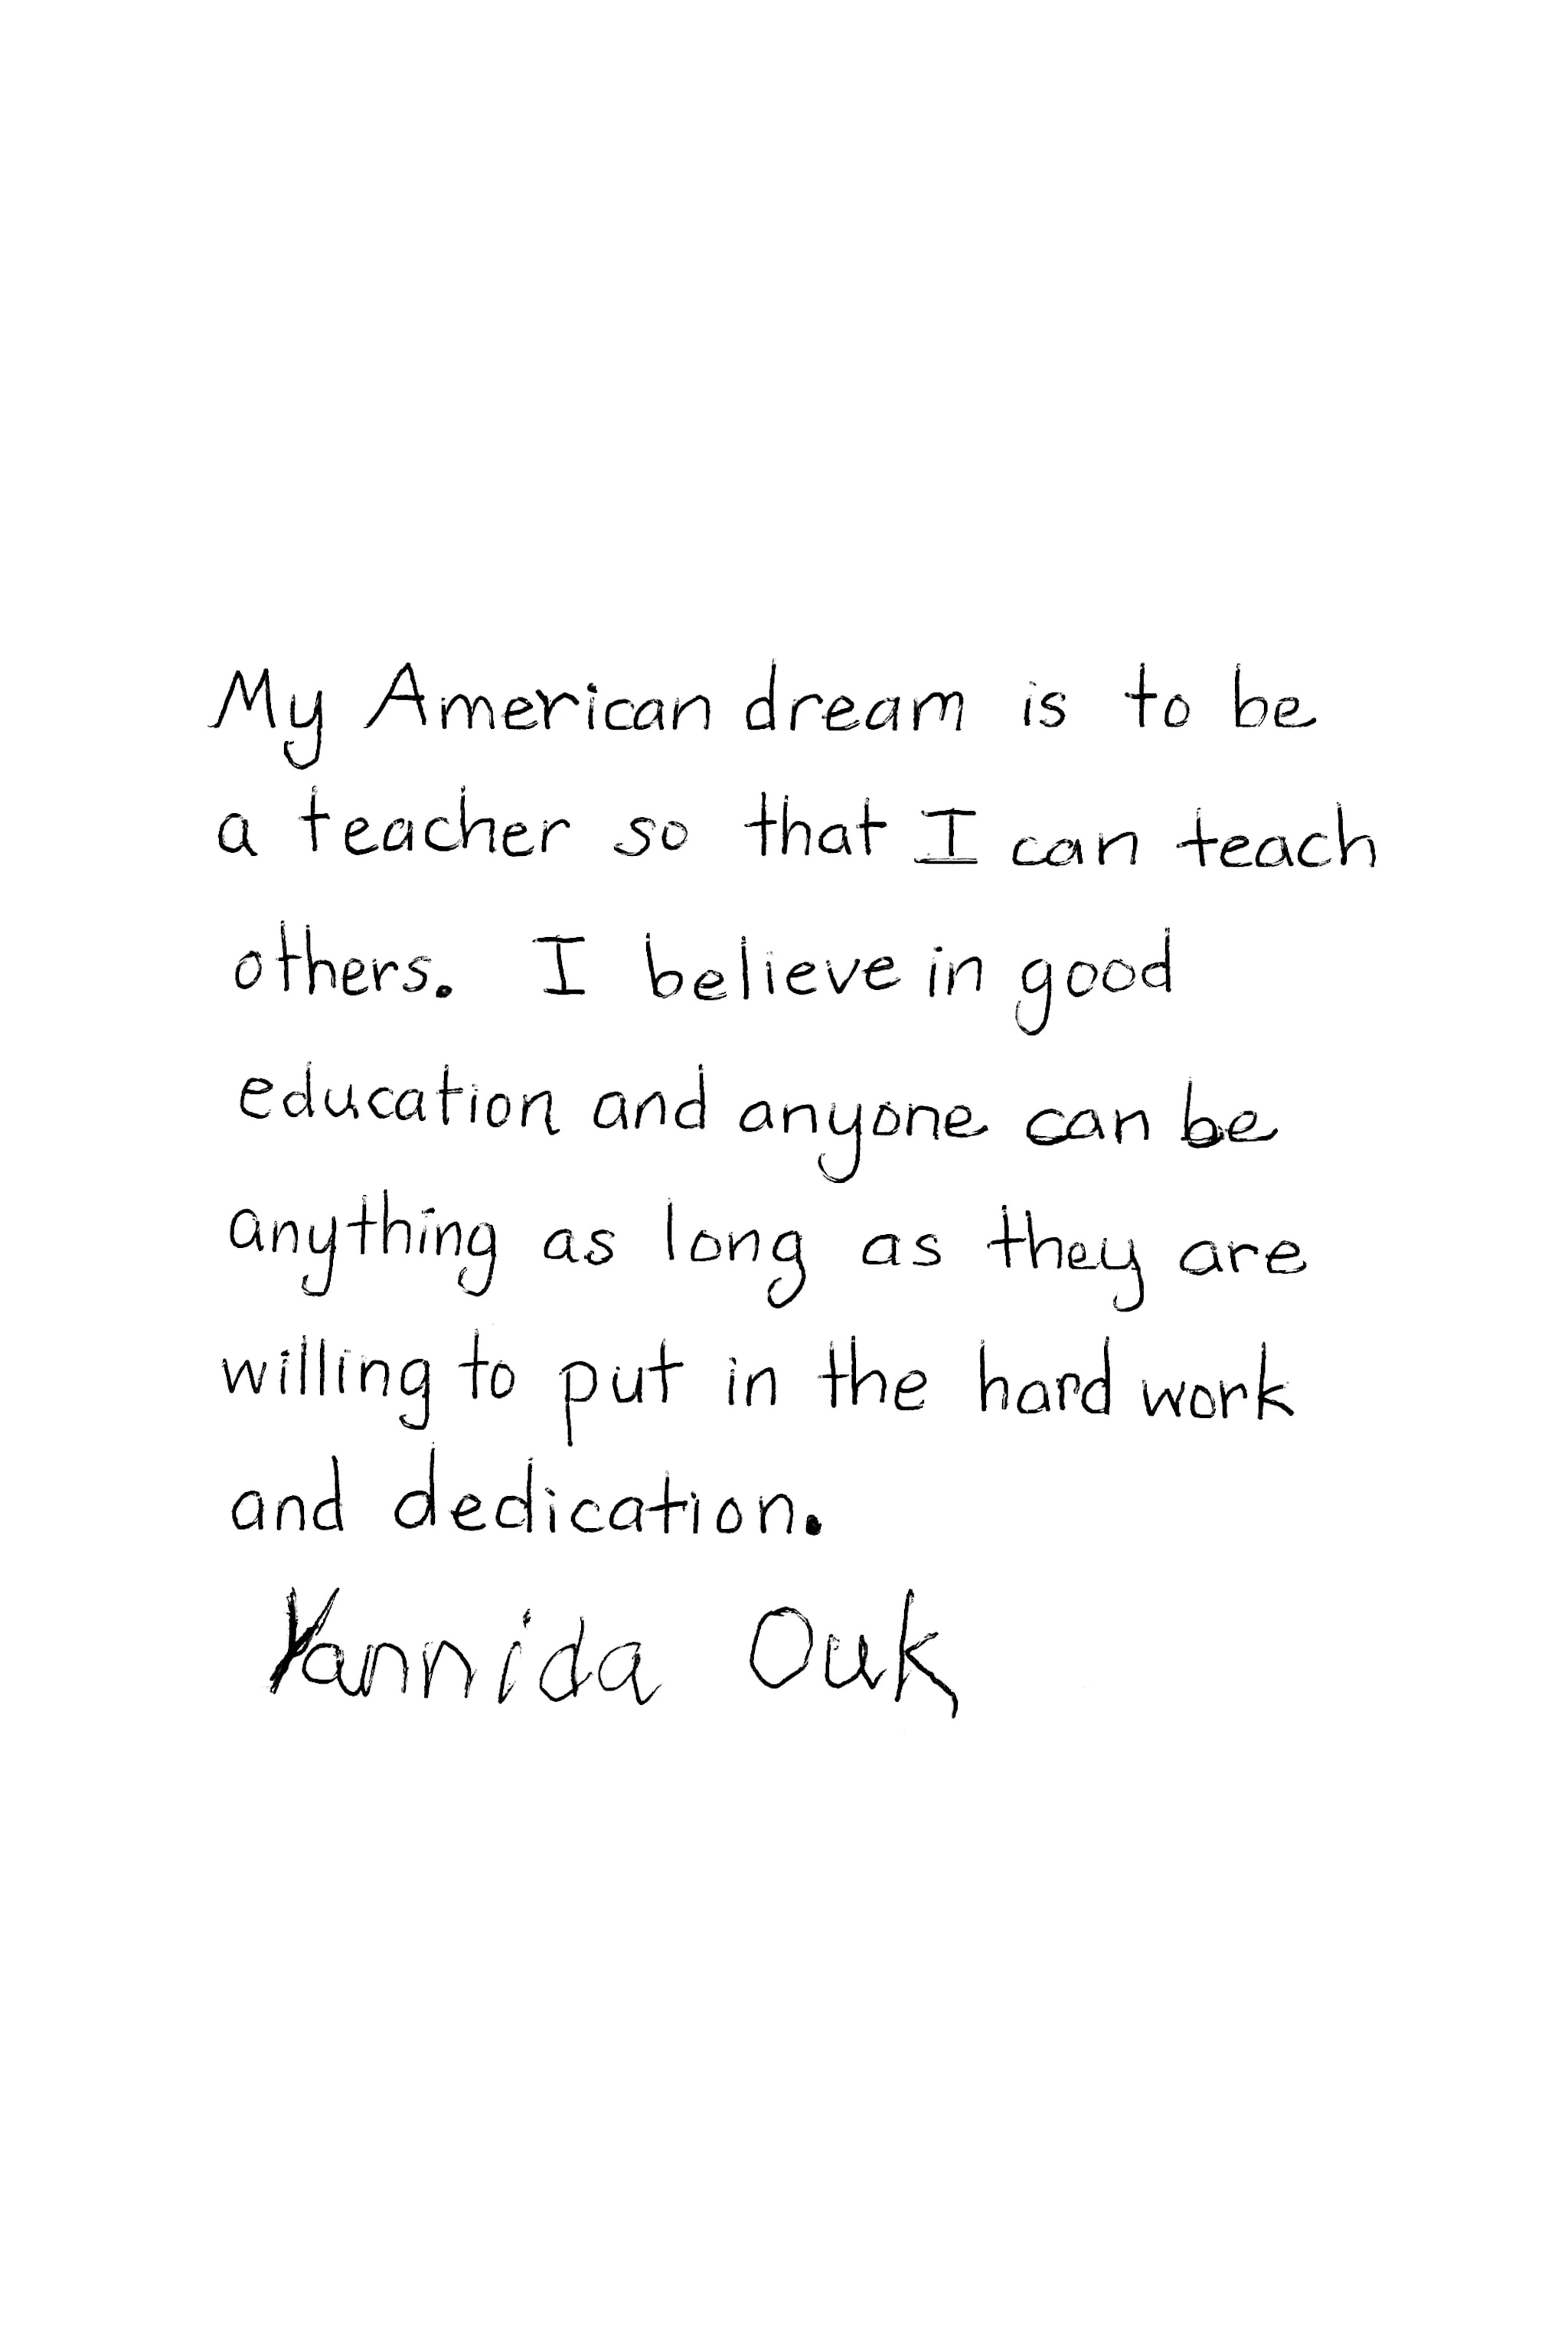 My American dream is to be
a teacher so that I can teach
others. I believe in good
education and anyone can be
anything as long as they are
willing to put in the hard work
and dedication.
Yannida Ouk